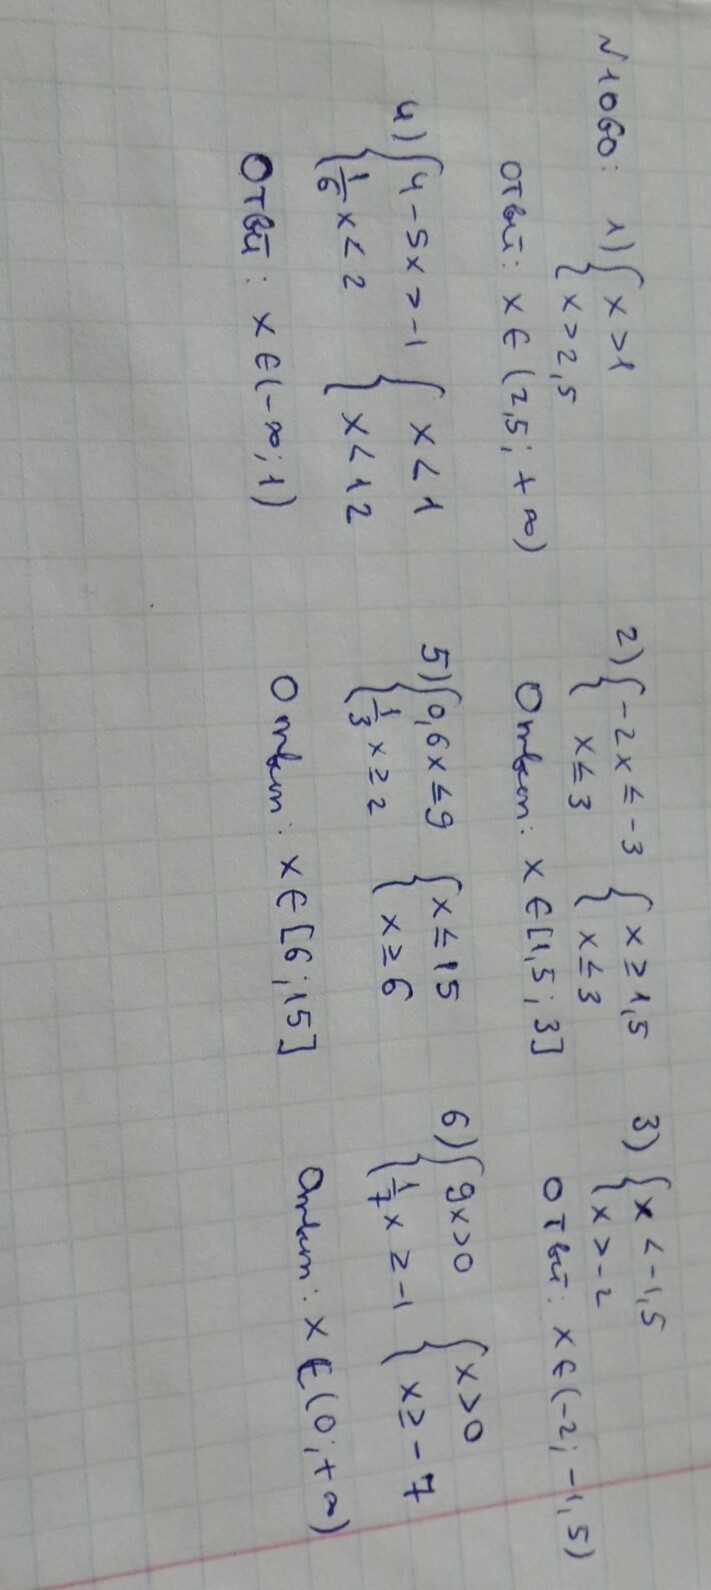 N1060: 1) { x > 1
x > 2,5
Ответ: x ∈ (2,5; +∞)
2) { -2x ≤ -3 { x ≥ 1,5
x ≤ 3 x ≤ 3
Ответ: x ∈ [1,5; 3]
3) { x < -1,5
x > -2
Ответ: x ∈ (-2; -1,5)
4) { 4 - 5x > -1 { x < 1
1/6 x < 2 x < 12
Ответ: x ∈ (-∞; 1)
5) { 0,6x ≤ 9 { x ≤ 15
1/3 x ≥ 2 x ≥ 6
Ответ: x ∈ [6; 15]
6) { 9x > 0 { x > 0
1/7 x ≥ -1 x ≥ -7
Ответ: x ∈ (0; +∞)